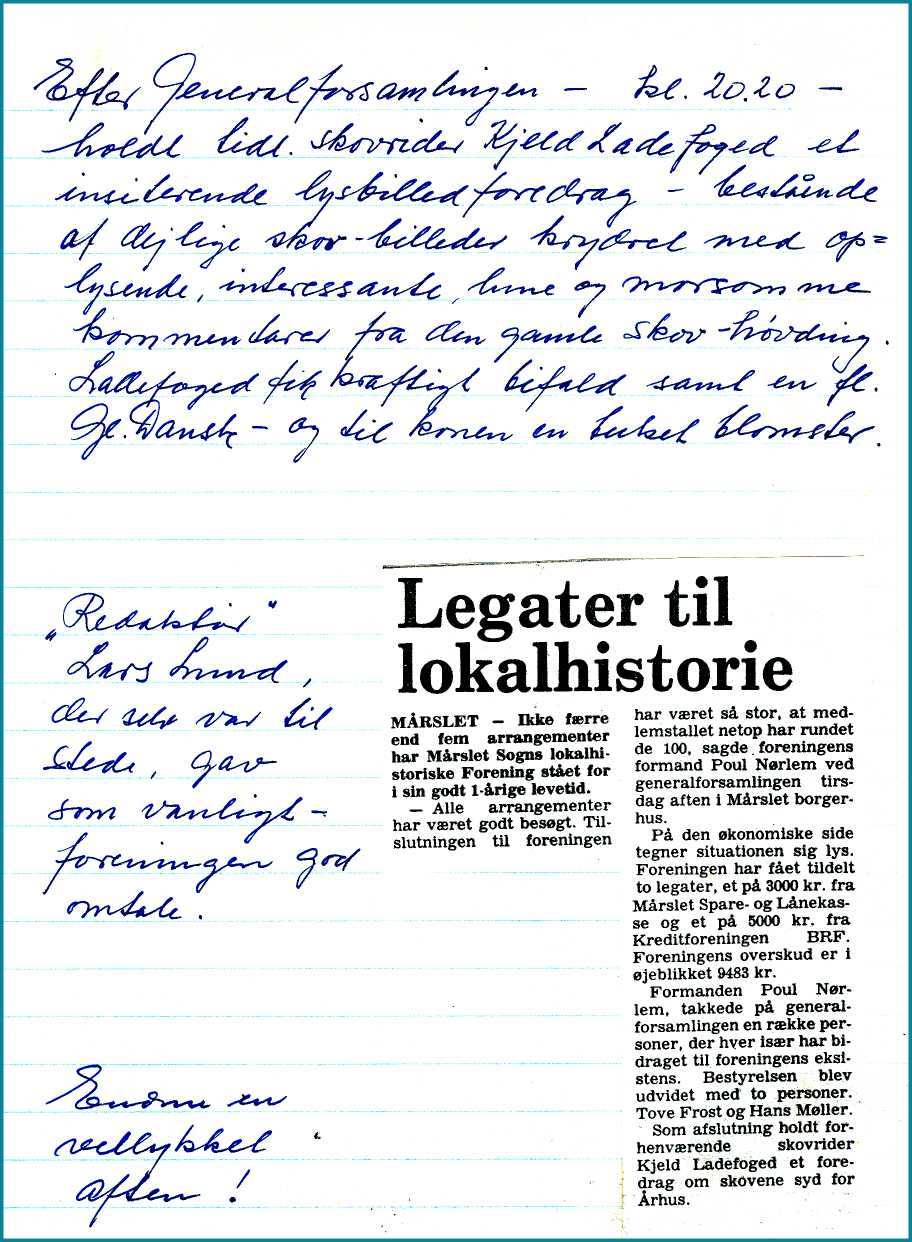 Efter Generalforsamlingen – kl. 20.20 –
holdt tidl. skovrider Kjeld Ladefoged et
insiterende lysbilledforedrag – bestående
af dejlige skov-billeder krydret med op=
lysende, interessante, lune og morsomme
kommentarer fra den gamle skov-høvding.
Ladefoged fik kraftigt bifald samt en fl.
Gl. Dansk – og til konen en buket blomster.
„Redaktør"
Lars Lund,
der selv var til
stede, gav
som vanligt –
foreningen god
omtale.
Endnu en
vellykket
aften !
Legater til
lokalhistorie
MÅRSLET – Ikke færre
end fem arrangementer
har Mårslet Sogns lokalhi-
storiske Forening stået for
i sin godt 1-årige levetid.
– Alle arrangementer
har været godt besøgt. Til-
slutningen til foreningen
har været så stor, at med-
lemstallet netop har rundet
de 100, sagde foreningens
formand Poul Nørlem ved
generalforsamlingen tirs-
dag aften i Mårslet borger-
hus.
På den økonomiske side
tegner situationen sig lys.
Foreningen har fået tildelt
to legater, et på 3000 kr. fra
Mårslet Spare- og Lånekas-
se og et på 5000 kr. fra
Kreditforeningen BRF.
Foreningens overskud er i
øjeblikket 9483 kr.
Formanden Poul Nør-
lem, takkede på general-
forsamlingen en række per-
soner, der hver især har bi-
draget til foreningens eksi-
stens. Bestyrelsen blev
udvidet med to personer.
Tove Frost og Hans Møller.
Som afslutning holdt for-
henværende skovrider
Kjeld Ladefoged et fore-
drag om skovene syd for
Århus.